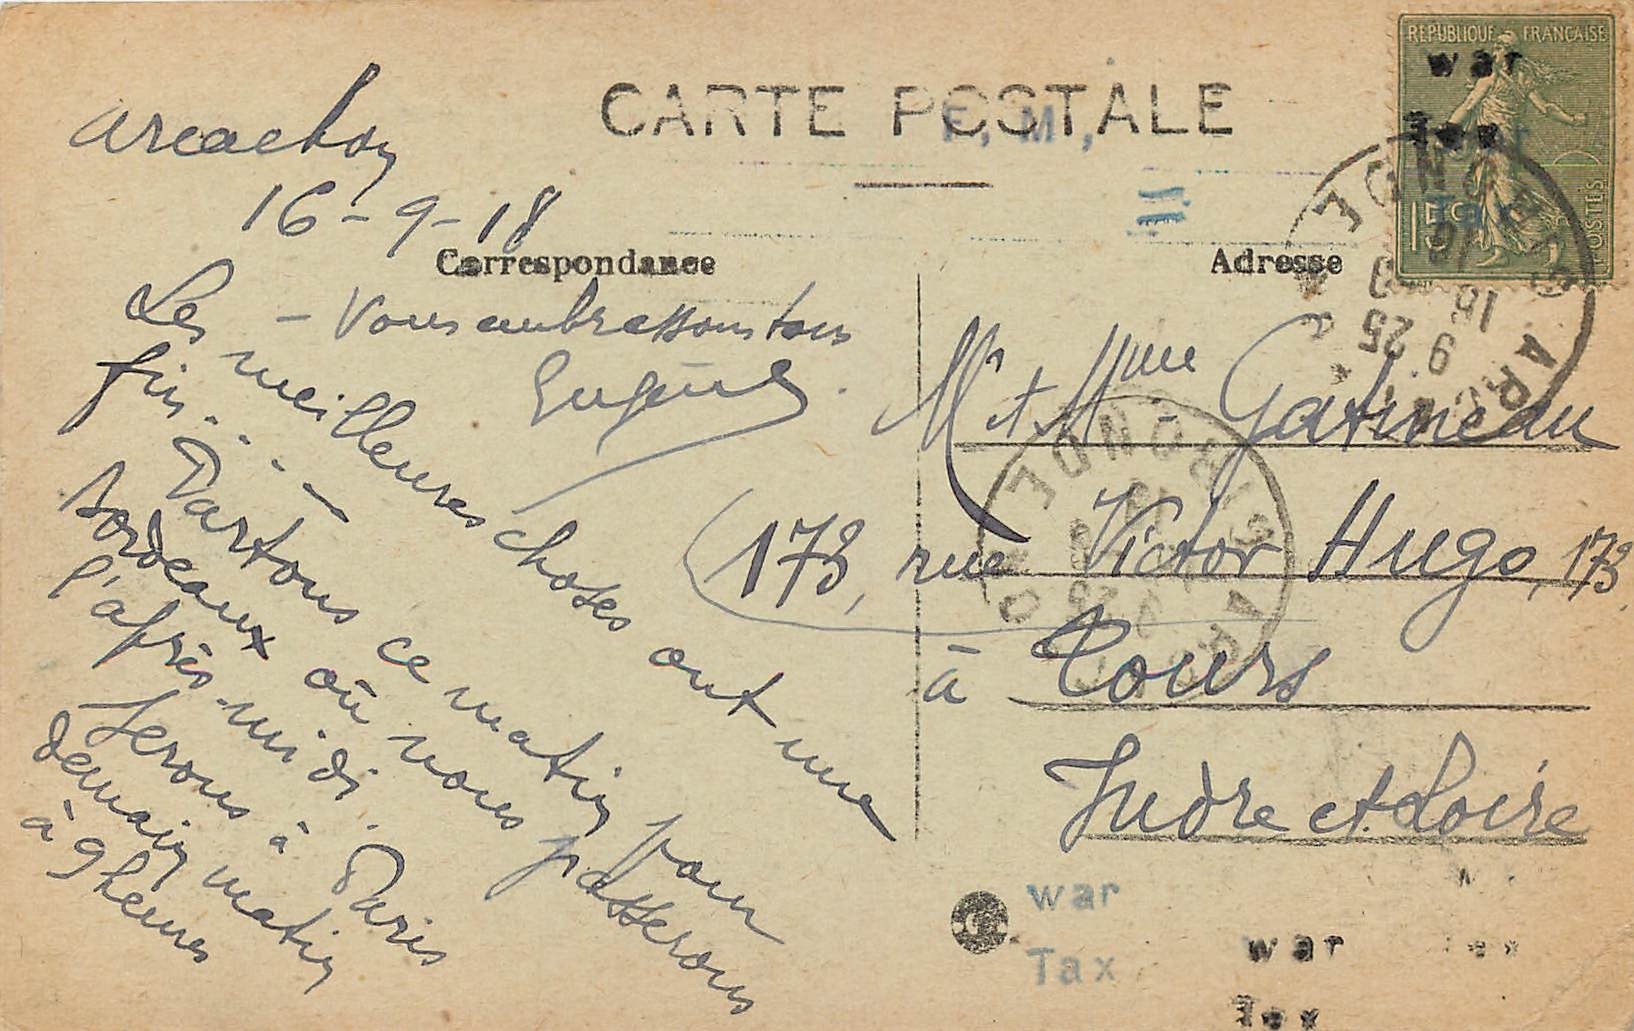 CARTE POSTALE
F, M,
REPUBLIQUE FRANÇAISE
15c
POSTES
war
Tax
war
Tax
Arcachon
16-9-18
Correspondance
Adresse
Les meilleures choses ont une
fin... – Partons ce matin pour
Bordeaux où nous passerons
l'après-midi. Serons à Paris
demain matin
à 9 heures
– Vous embrassons tous
Eugène
Mr et Mme Gatineau
173, rue Victor Hugo, 173,
à Tours
Indre et Loire
GIRONDE
16
9
25
9
18
GIRONDE
war
Tax
war
Tax
Tax